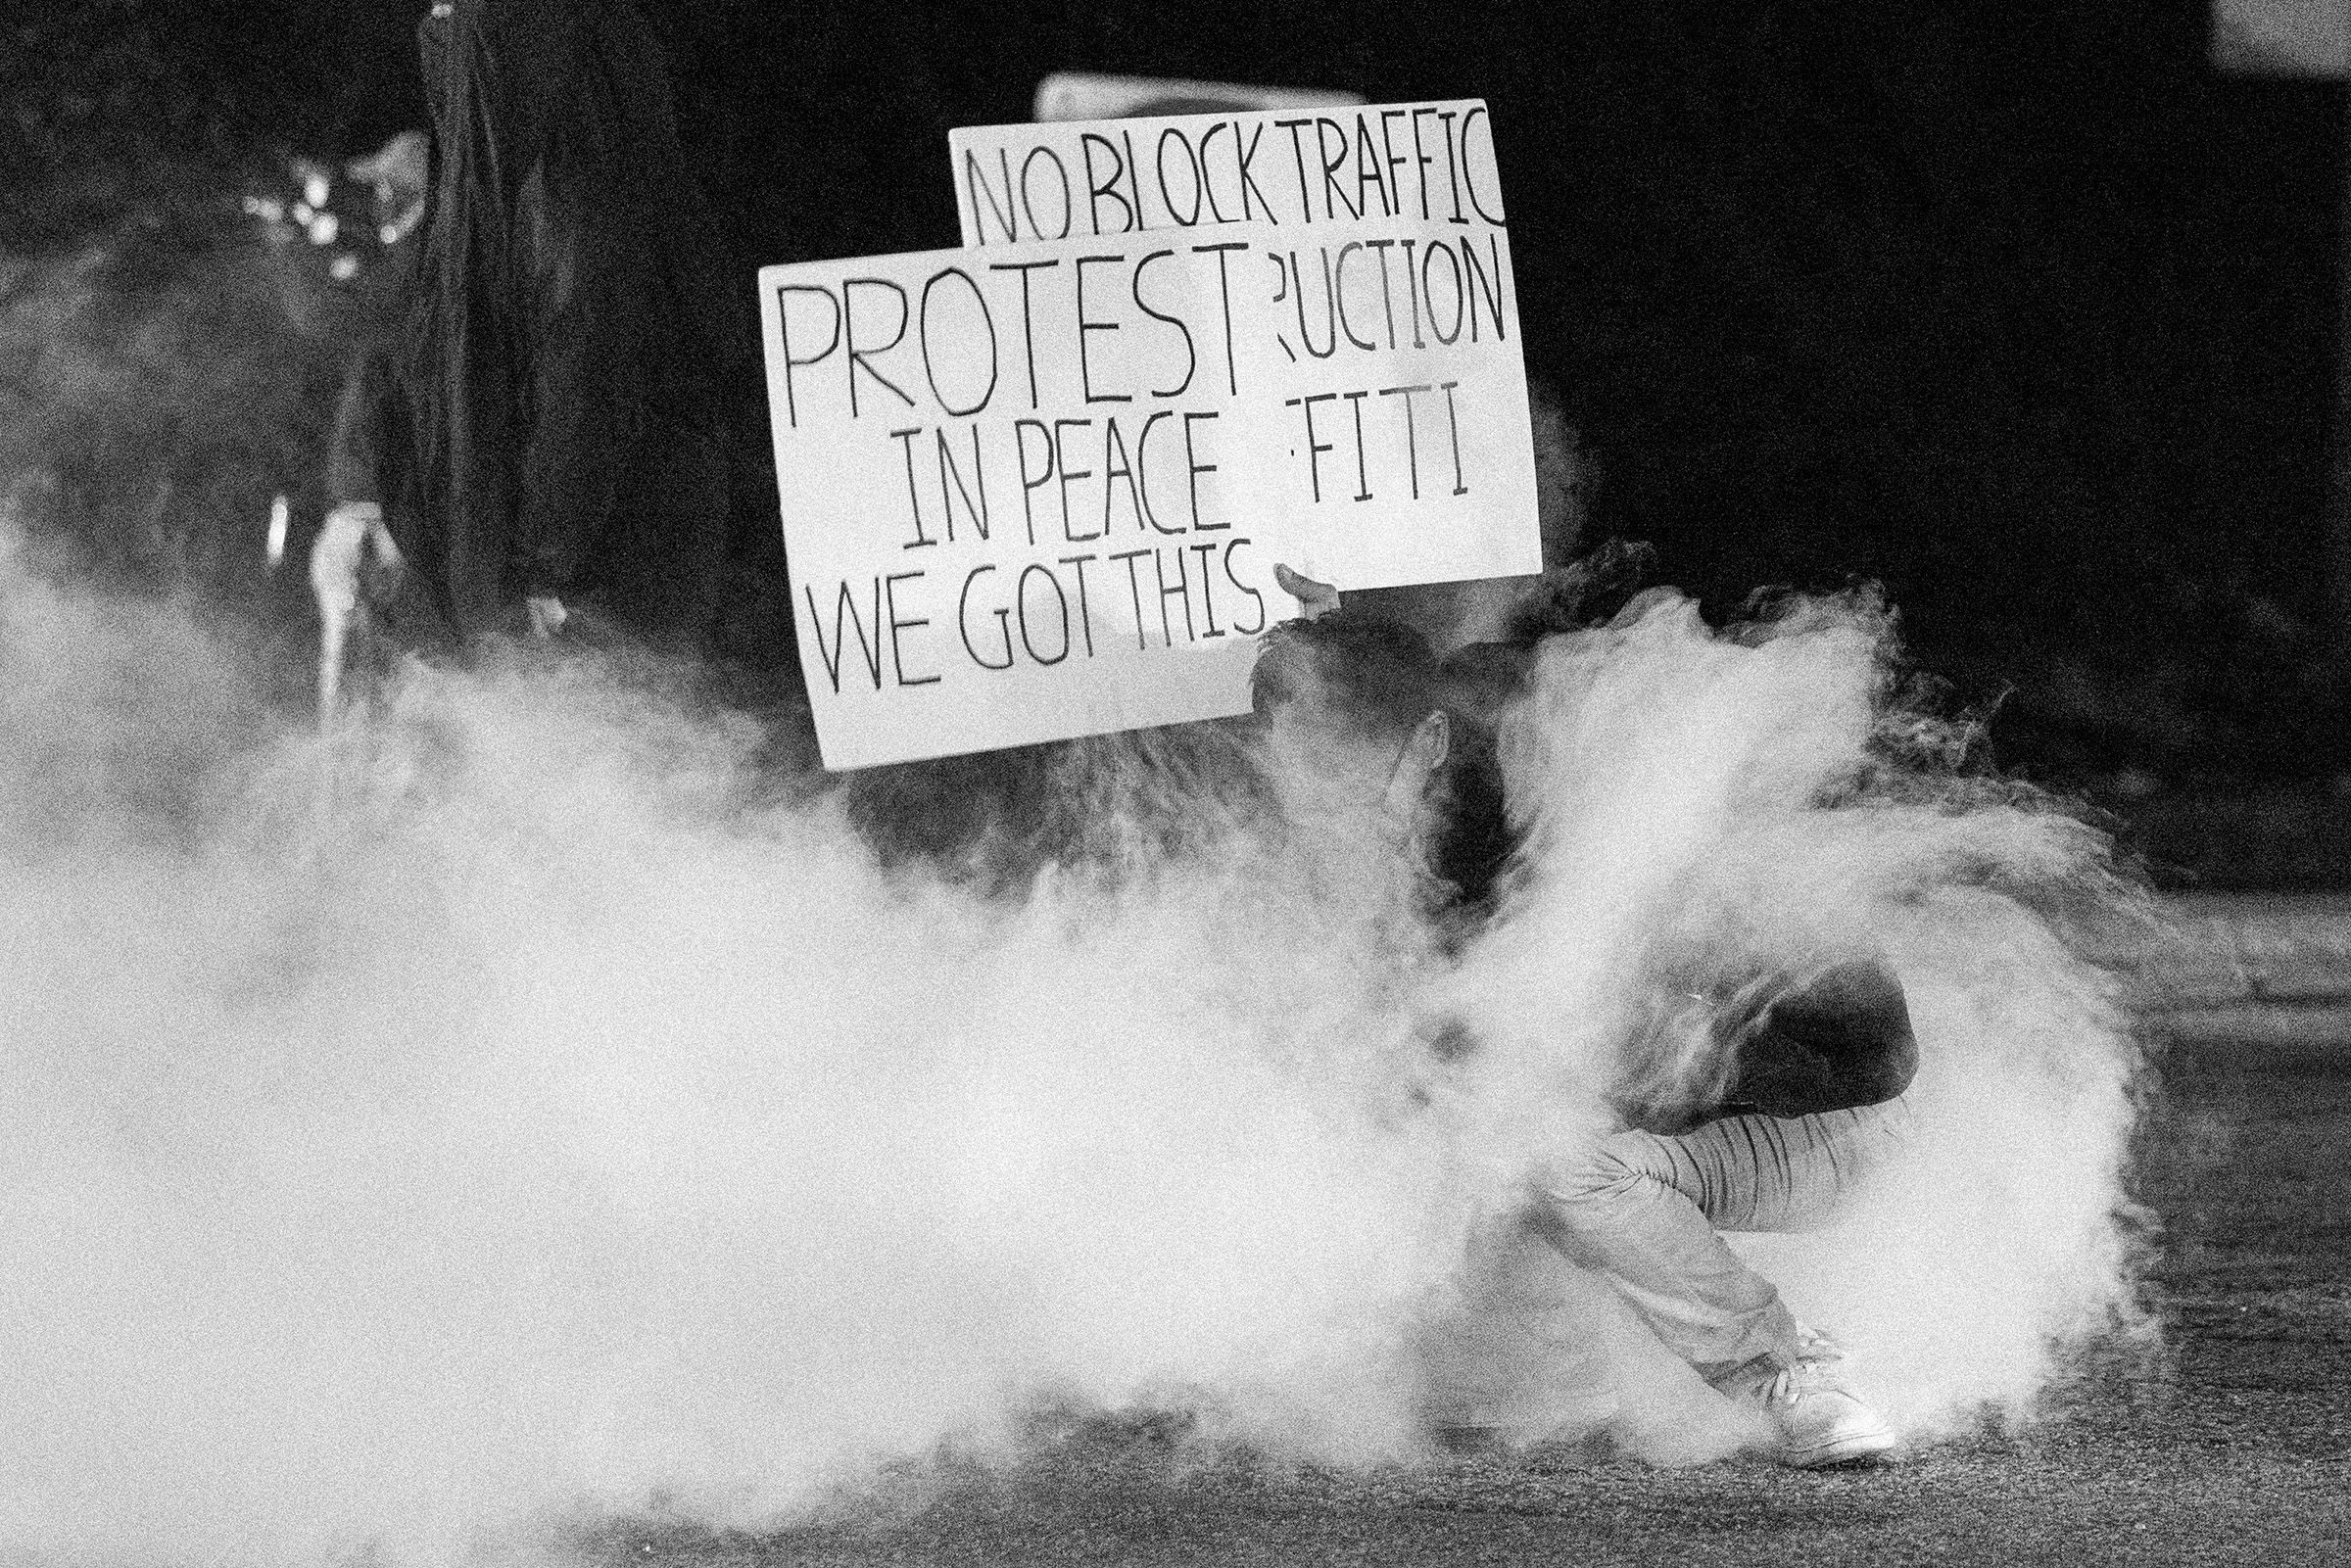 NO BLOCK TRAFFIC
RUCTION
FITI
PROTEST
IN PEACE
WE GOT THIS